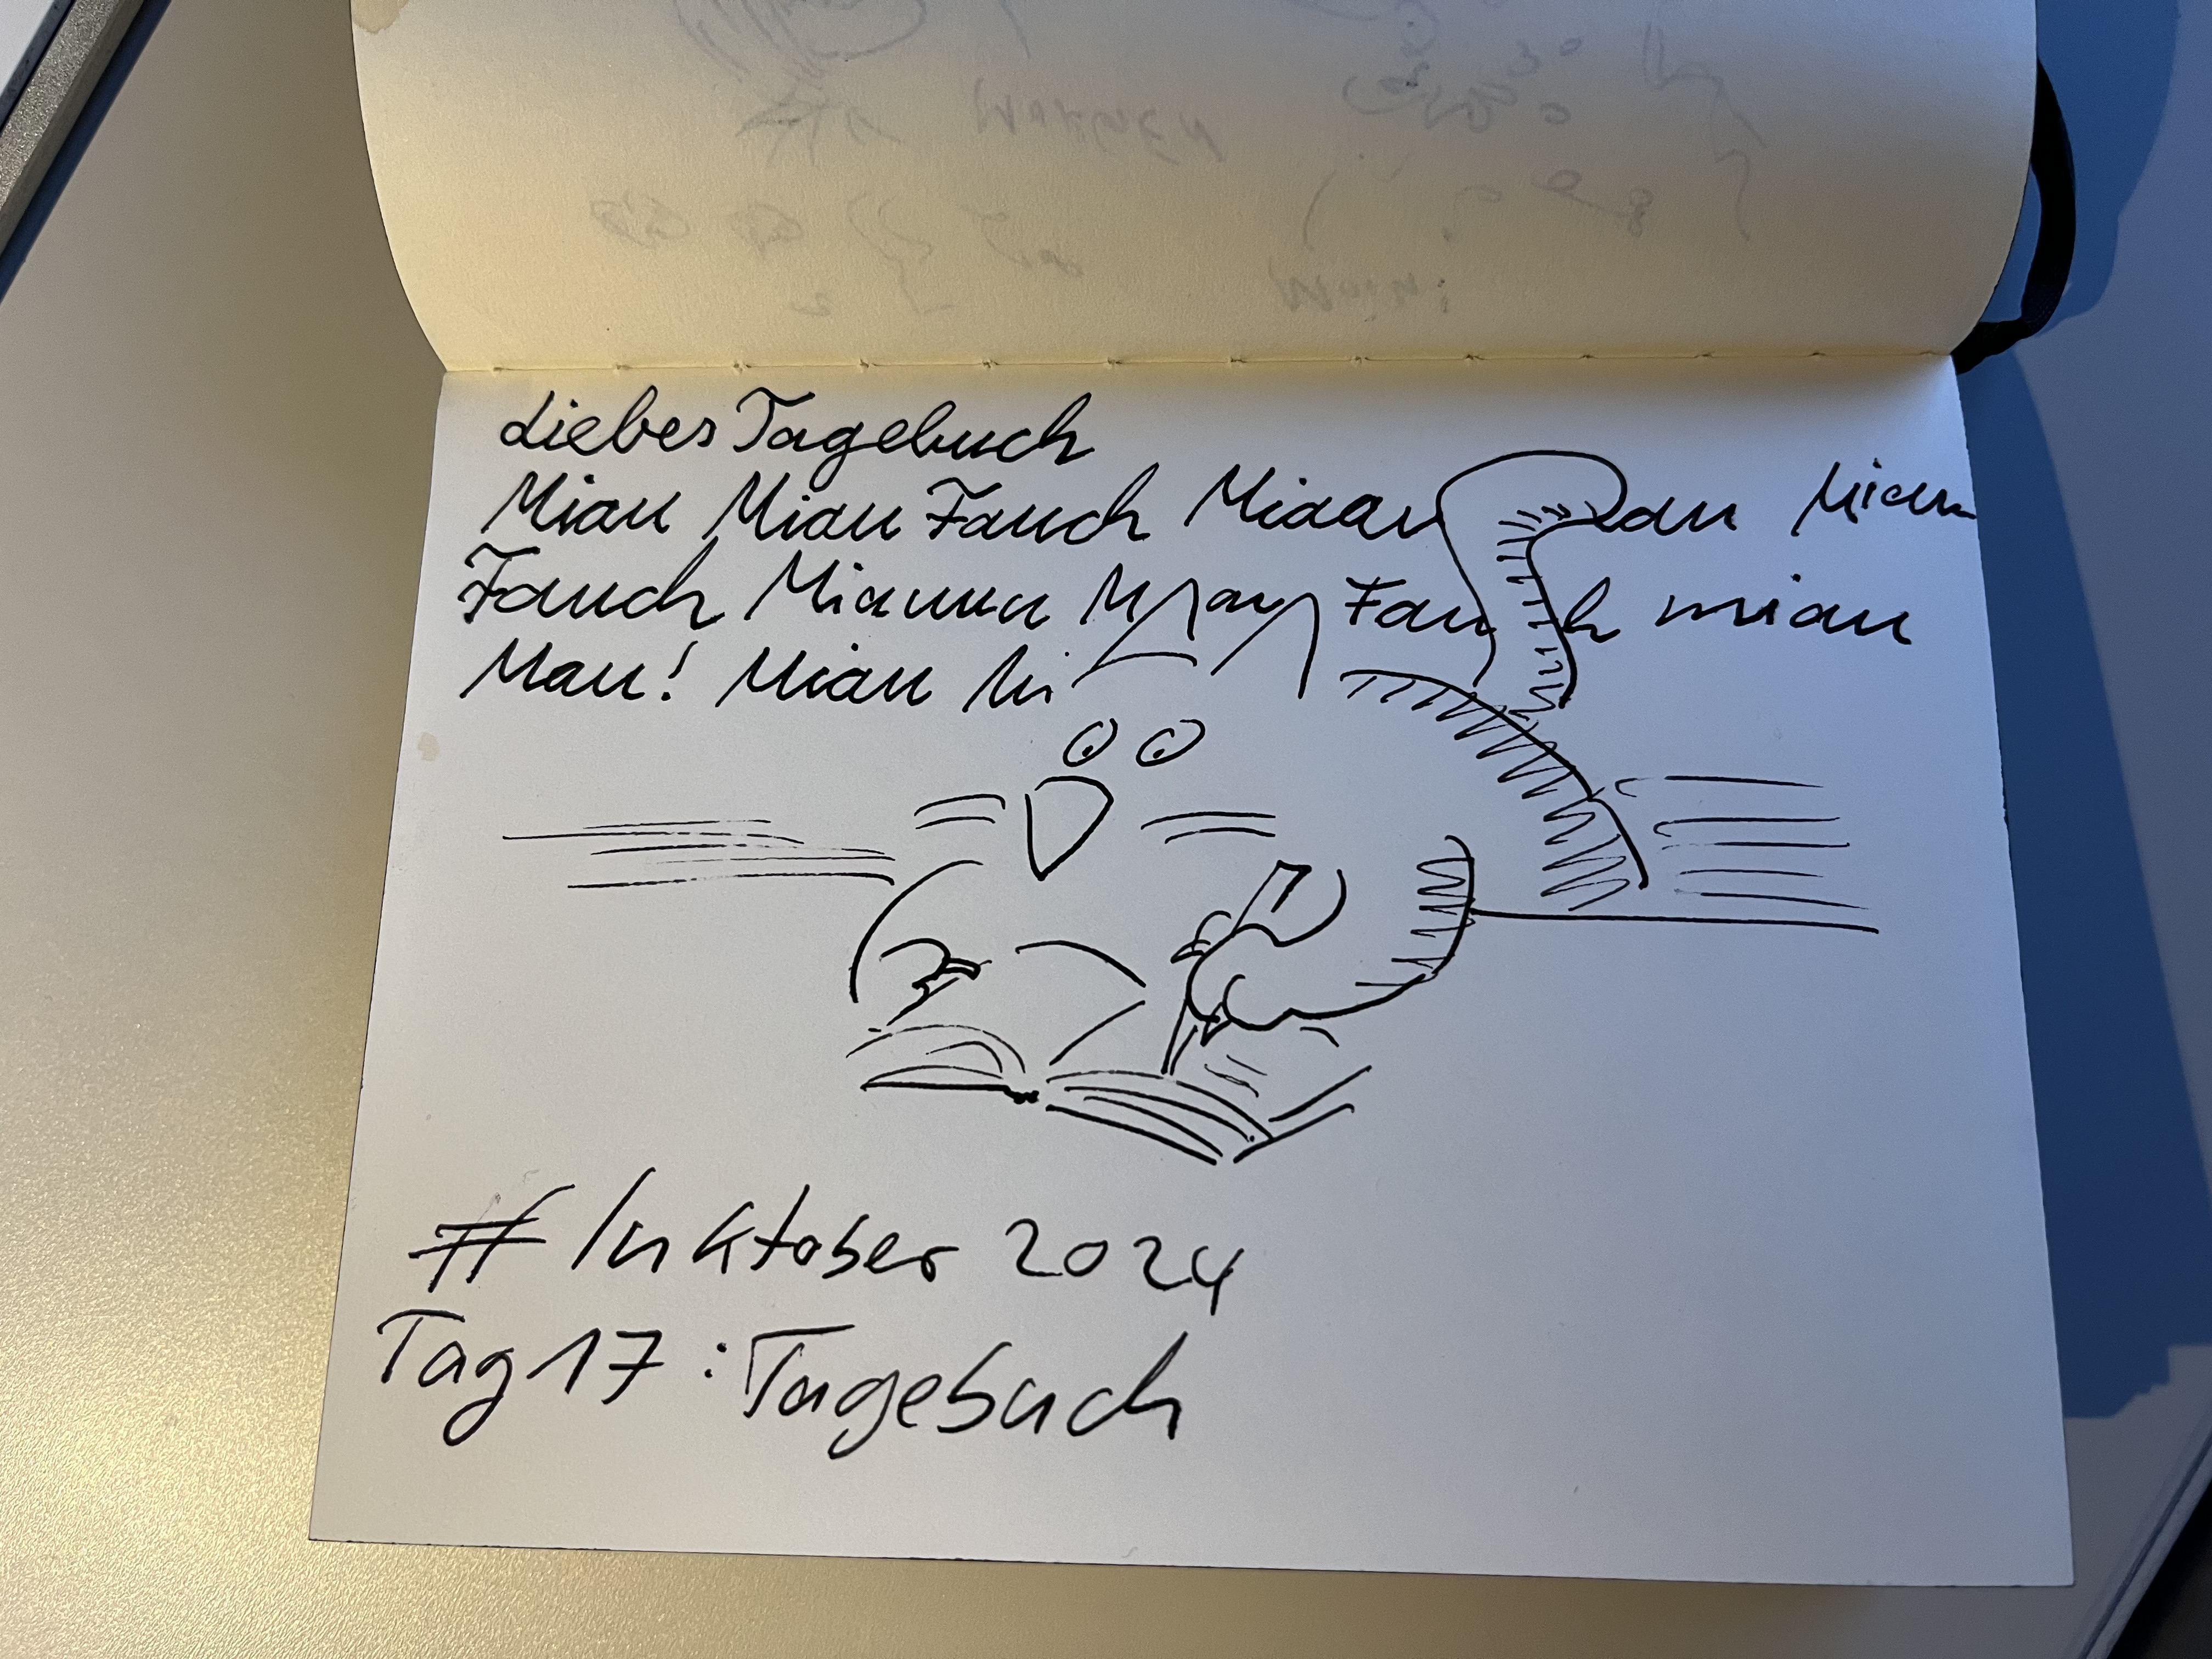 Liebes Tagebuch
Miau Miau Fauch Miaau au Miau
Fauch Miauuu Fau h miau
Mau! Miau Mi
# Inktober 2024
Tag 17 : Tagebuch